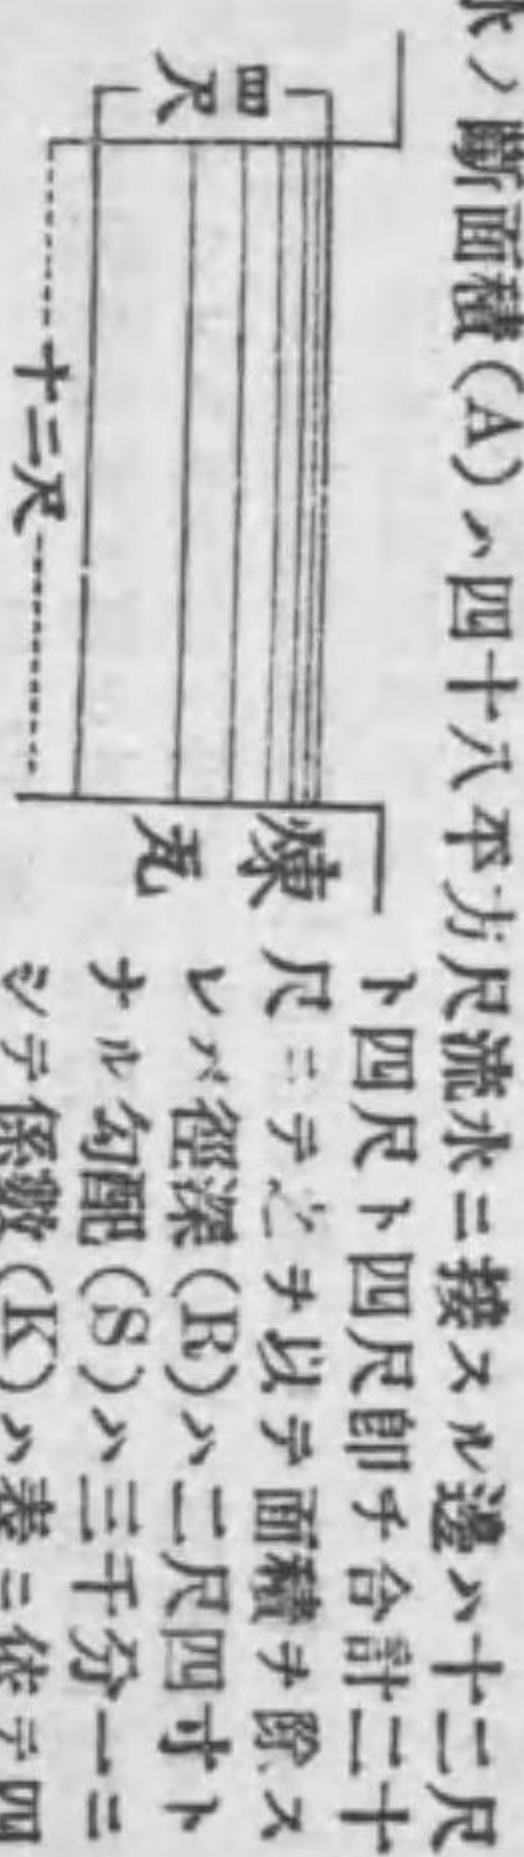 水ノ斷面積(A)ハ四十八平方尺流水ニ接スル邊ハ十二尺
ト四尺ト四尺卽チ合計二十
尺ニテ之ヲ以テ面積ヲ除ス
レバ徑深(R)ハ二尺四寸ト
ナル勾配(S)ハ三千分一ニ
シテ係數(K)ハ表ニ依テ四
四尺
十二尺
煉瓦